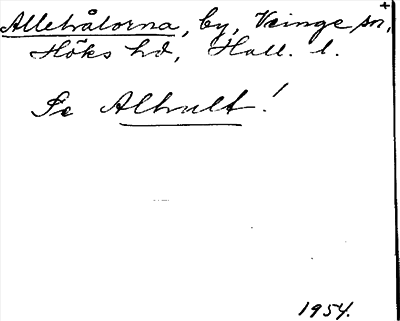 Allehålorna, by, Veinge sn,
Höks hd, Hall. l.
Se Alhult!
1954.